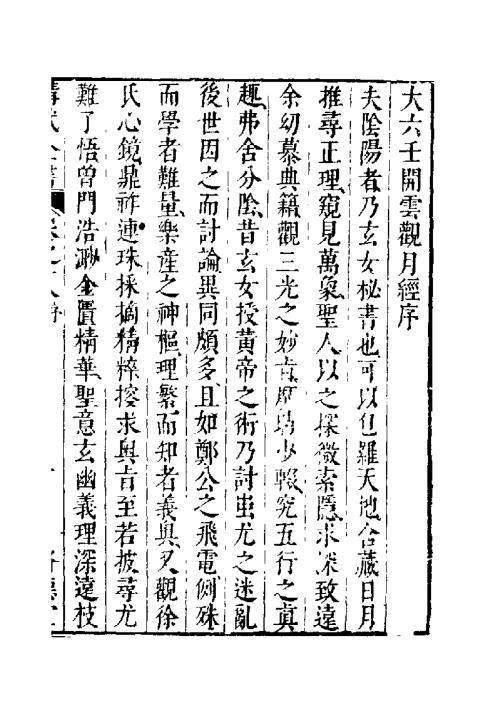 大六壬開雲觀月經序
夫陰陽者乃玄女秘書也可以包羅天地含藏日月
推尋正理窺見萬象聖人以之探微索隱求深致遠
余幼慕典籍觀三光之妙旨靡遑少輟究五行之真
趣弗舍分陰昔玄女授黄帝之術乃討蚩尤之迷亂
後世因之而討論異同頗多且如鄭公之飛電側殊
而學者難量樂産之神樞理繁而知者義奥又觀徐
氏心鏡鼎祚連珠採摘精粹控求奥旨至若披尋尤
難了悟曾門浩渺金匱精華聖意玄幽義理深遠枝